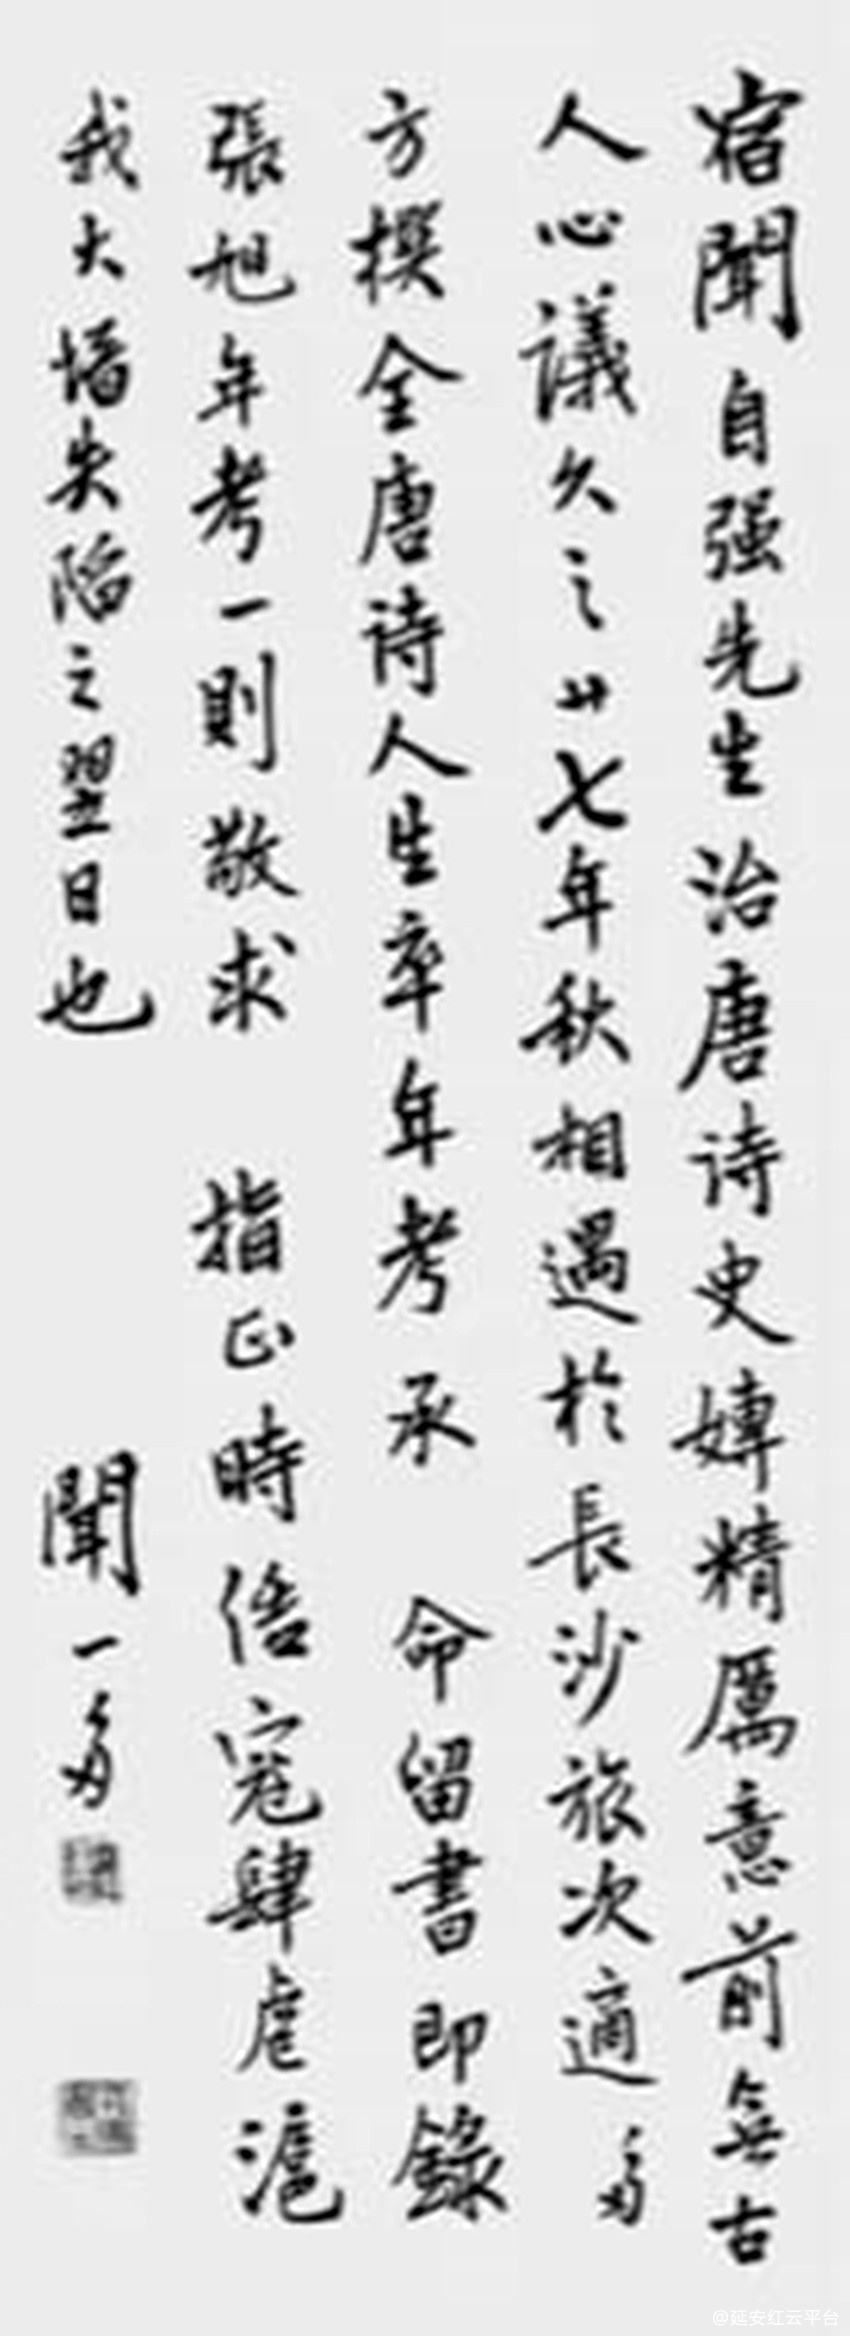 宿聞自强先生治唐诗史婢精厲意前無古
人心議久之廿七年秋相遇於長沙旅次適多
方撰全唐诗人生卒年考承命留書即錄
張旭年考一則敬求指正時倭寇肆虐滬
我大場失陷之翌日也
聞一多
@延安红云平台